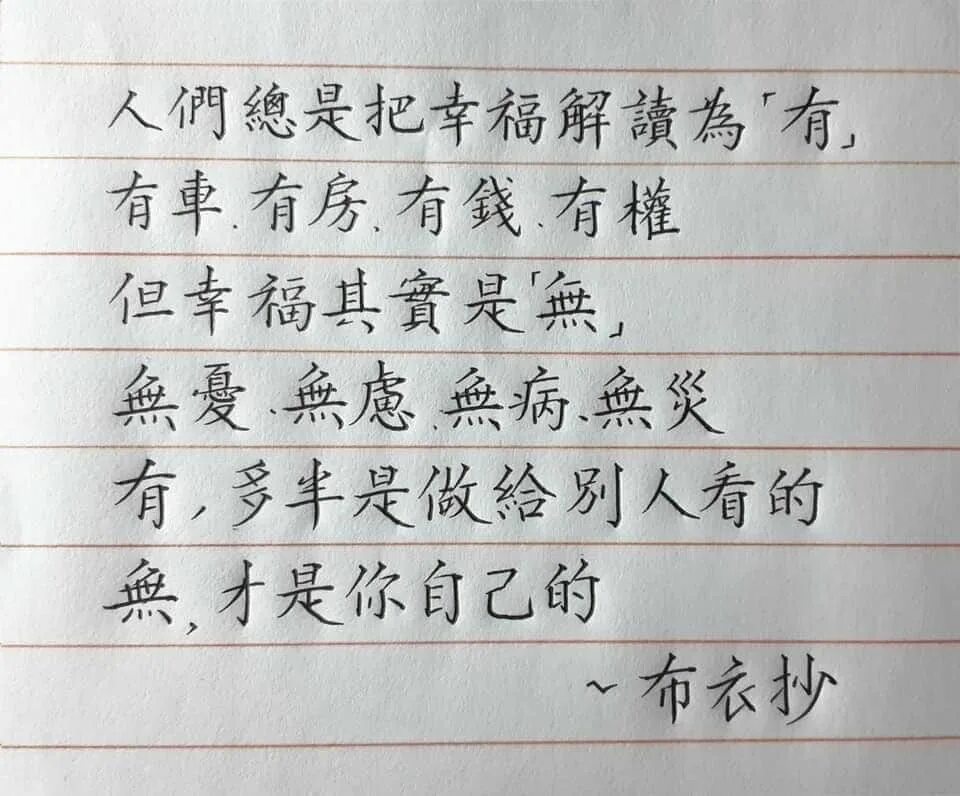 人們總是把幸福解讀為「有」
有車、有房、有錢、有權
但幸福其實是「無」
無憂、無慮、無病、無災
有，多半是做給別人看的
無，才是你自己的
~布衣抄